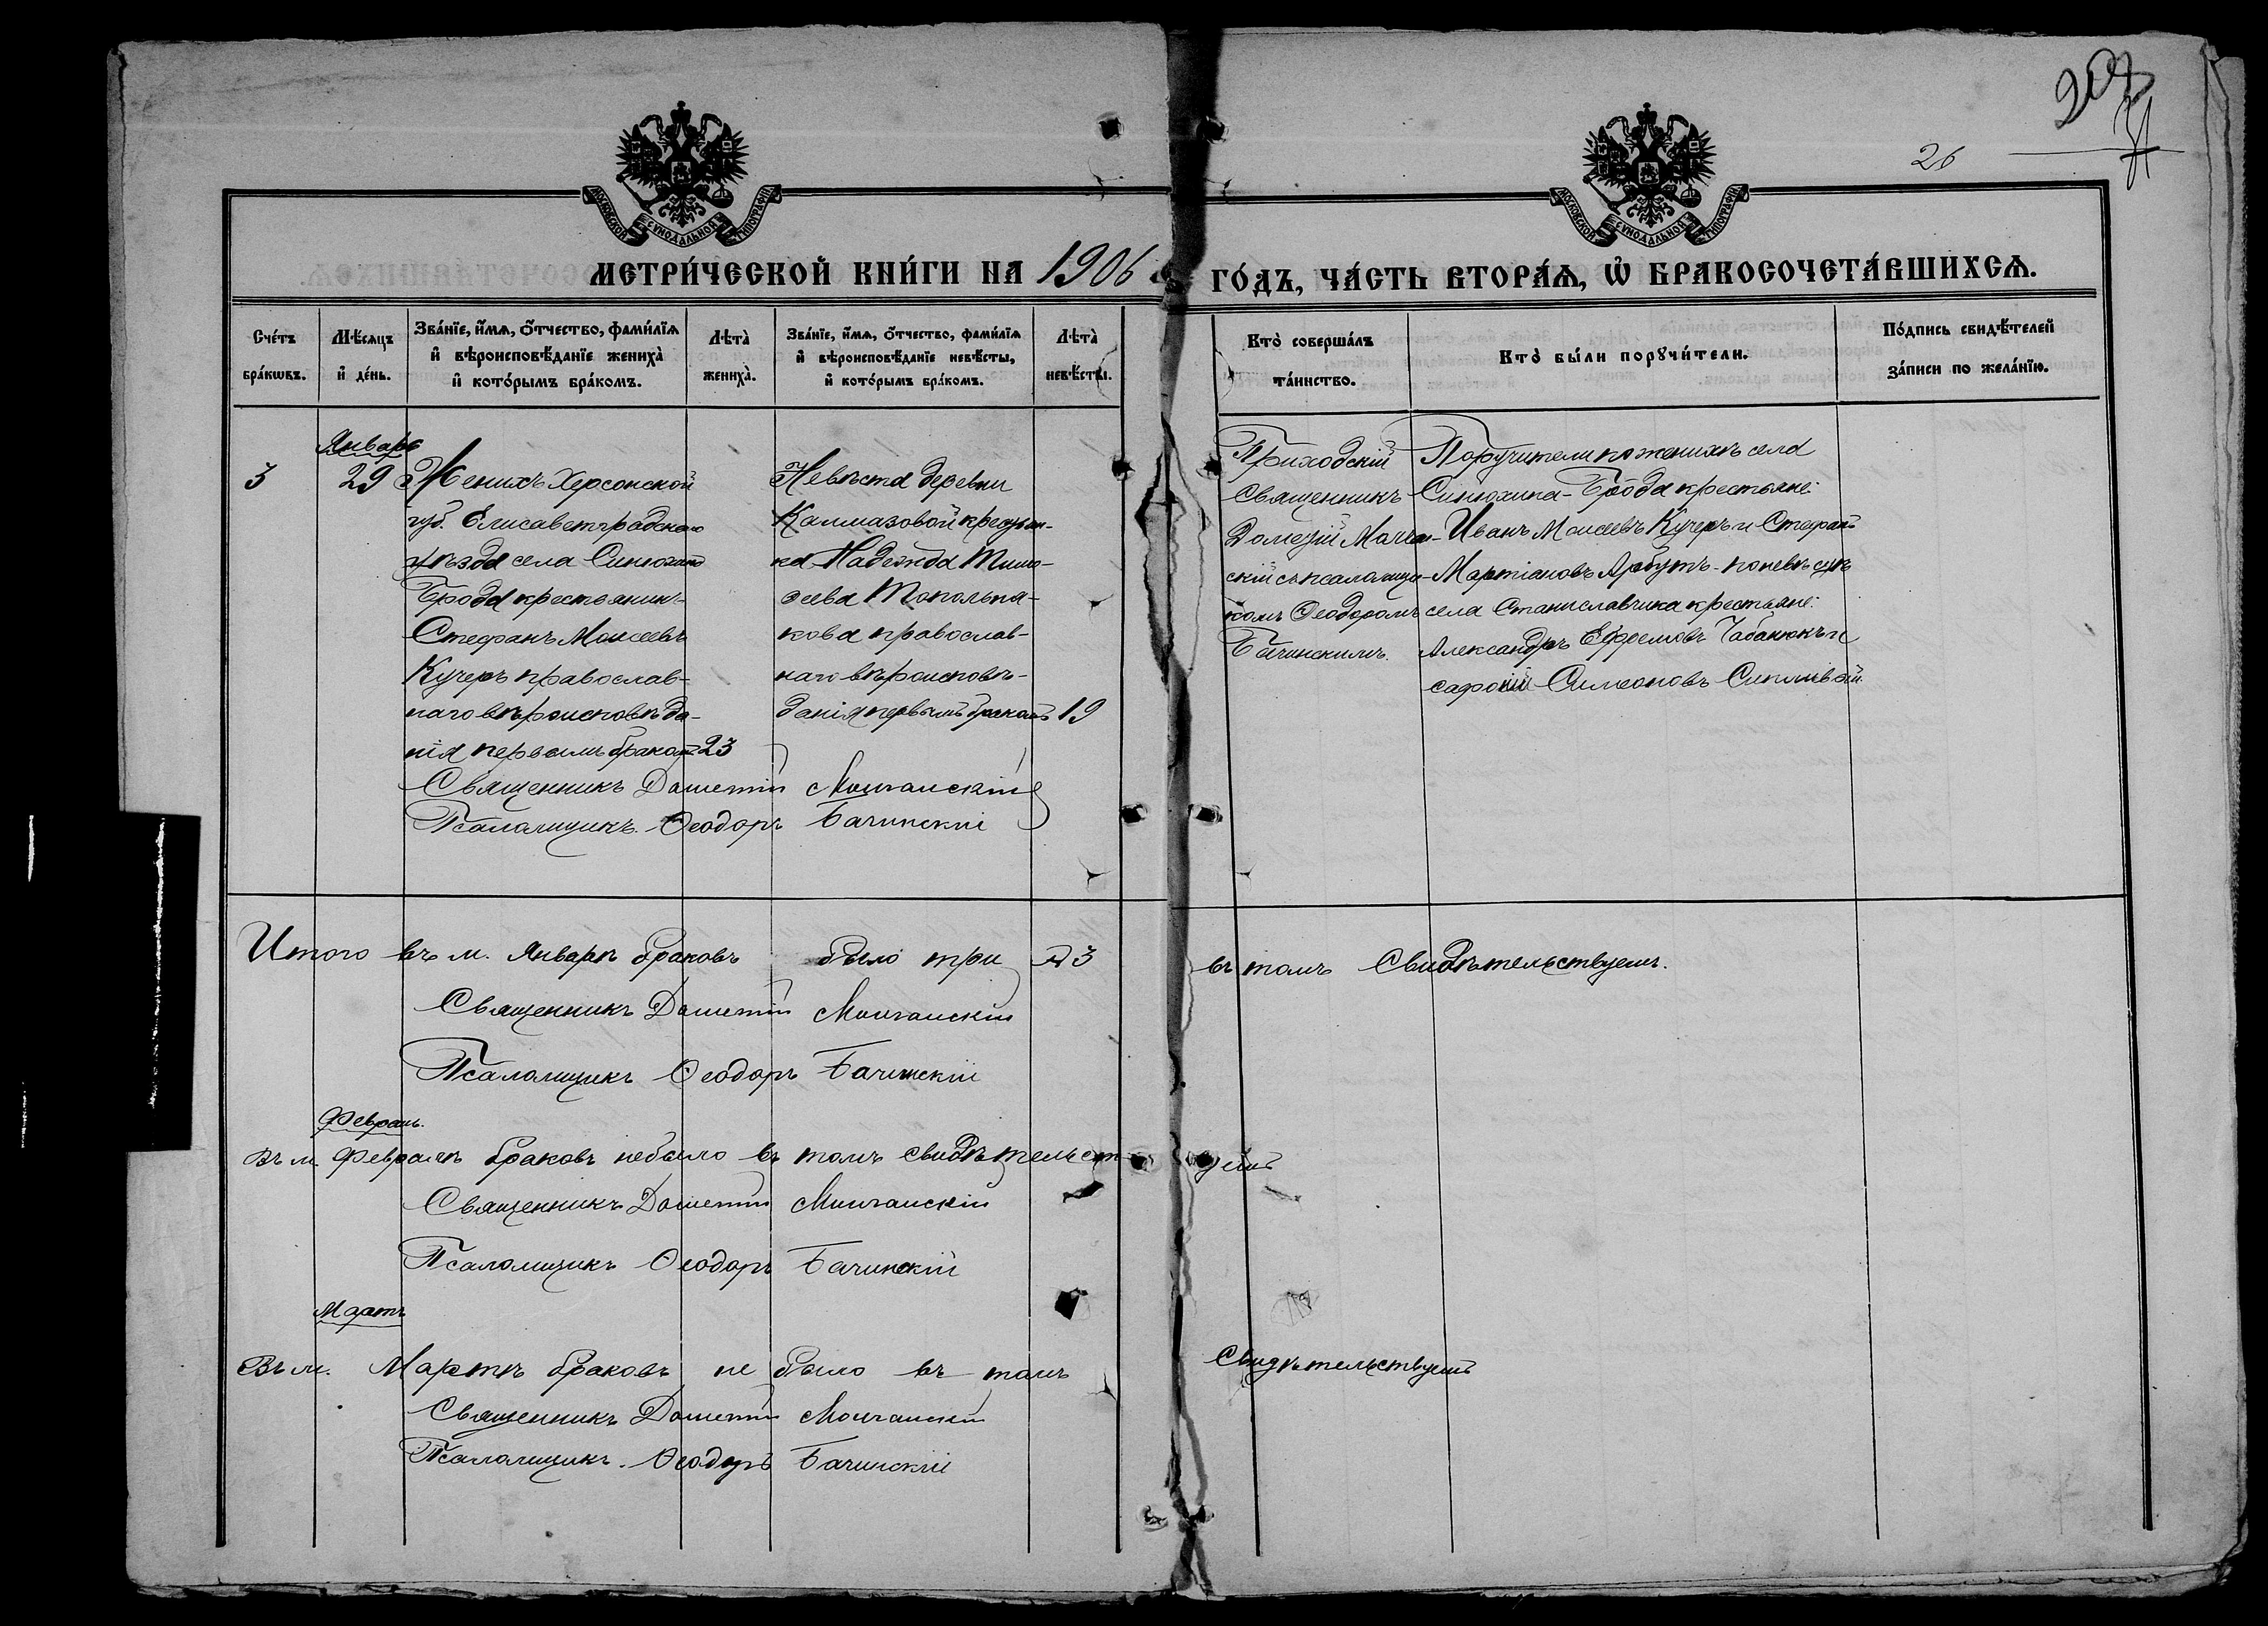 26
МОСКОВСКОЙ СѴНОДАЛЬНОЙ ТИПОГРАФІИ
МОСКОВСКОЙ СѴНОДАЛЬНОЙ ТИПОГРАФІИ
МЕТРИ́ЧЕСКОЙ КНИ́ГИ НА 1906 ГО́ДЪ, ЧА́СТЬ ВТОРА́Ѧ, Ѡ҆ БРАКОСОЧЕТА́ВШИХСѦ.
Сче́тъ бра́кѡвъ.
Мѣ́сяцъ и҆ де́нь.
Зва́нїе, и҆́мѧ, ѻ҆́тчество, фами́лїѧ
и҆ вѣроисповѣ́данїе жениха̀
и҆ кото́рымъ бра́комъ.
Лѣта̀ жениха̀.
Зва́нїе, и҆́мѧ, ѻ҆́тчество, фами́лїѧ
и҆ вѣроисповѣ́данїе невѣ́сты,
и҆ кото́рымъ бра́комъ.
Лѣта̀ невѣ́сты.
Кто̀ соверша́лъ
та́инство.
Кто̀ бы́ли порꙋчи́тели.
По́дпись свидѣ́телей
за́писи по жела́нїю.
3
Январь
29
Женихъ Херсонской
губ. Елисаветградскаго
уѣзда села Синюхина
Брода крестьянинъ
Стефанъ Моисеевъ
Кучеръ православ-
наго вѣроисповѣда-
нія первымъ бракомъ 23
Невѣста деревни
Калмазовой крестьян-
ка Надежда Тимо-
ѳеева Топольня-
кова православ-
наго вѣроисповѣ-
данія первымъ бракомъ 19
Священникъ Дометій Молчанскій
Псаломщикъ Ѳеодоръ Бачинскій
Приходскій
Священникъ
Дометій Молчан-
скій съ псаломщи-
комъ Ѳеодоромъ
Бачинскимъ.
Поручители по женихѣ села
Синюхина-Брода крестьяне:
Иванъ Моисеевъ Кучеръ и Стефанъ
Мартіановъ Арбутъ - по невѣстѣ
села Станиславчика крестьяне:
Александръ Ефремовъ Чабанюкъ и
Сафоній Симеоновъ Сипливый.
Итого въ м. Январѣ браковъ было три 3 въ томъ Свидѣтельствуемъ.
Священникъ Дометій Молчанскій
Псаломщикъ Ѳеодоръ Бачинскій
Февраль.
Въ м. Февралѣ браковъ небыло въ томъ свидѣтельствуемъ
Священникъ Дометій Молчанскій
Псаломщикъ Ѳеодоръ Бачинскій
Мартъ
Въ м. Мартѣ браковъ не было въ томъ Свидѣтельствуемъ
Священникъ Дометій Молчанскій
Псаломщикъ Ѳеодоръ Бачинскій